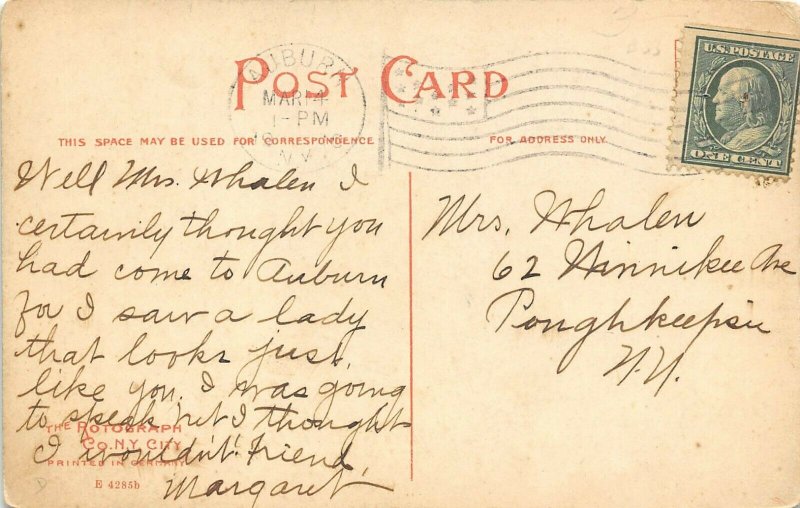 POST CARD
AUBURN
MAR 14
1-PM
N.Y.
U.S. POSTAGE
ONE CENT
THIS SPACE MAY BE USED FOR CORRESPONDENCE
FOR ADDRESS ONLY
Well Mrs. Whalen I
certainly thought you
had come to Auburn
for I saw a lady
that looks just
like you. I was going
to speak but I thought
I wouldn't. Friend,
Margaret
Mrs. Whalen
62 Winnikee Ave
Poughkeepsie
N.Y.
THE ROTOGRAPH
CO. N.Y. CITY
PRINTED IN GERMANY
E 4285b